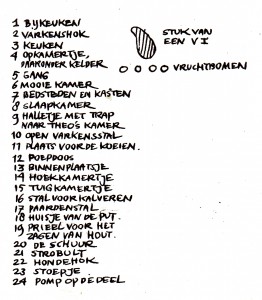 1 BYKEUKEN
2 VARKENSHOK
3 KEUKEN
4 OPKAMERTJE,
DAARONDER KELDER
5 GANG
6 MOOIE KAMER
7 BEDSTEDEN EN KASTEN
8 SLAAPKAMER
9 HALLETJE MET TRAP
NAAR THEO'S KAMER
10 OPEN VARKENSSTAL
11 PLAATS VOOR DE KOEIEN.
12 POEPDOOS
13 BINNENPLAATSJE
14 HOEKKAMERTJE
15 TUIGKAMERTJE
16 STAL VOOR KALVEREN
17 PAARDENSTAL
18 HUISJE VAN DE PUT.
19 PRIEEL VOOR HET
ZAGEN VAN HOUT.
20 DE SCHUUR
21 STROBULT
22 HONDEHOK
23 STOEPJE
24 POMP OP DE DEEL
STUK VAN
EEN VI
VRUCHTBOMEN